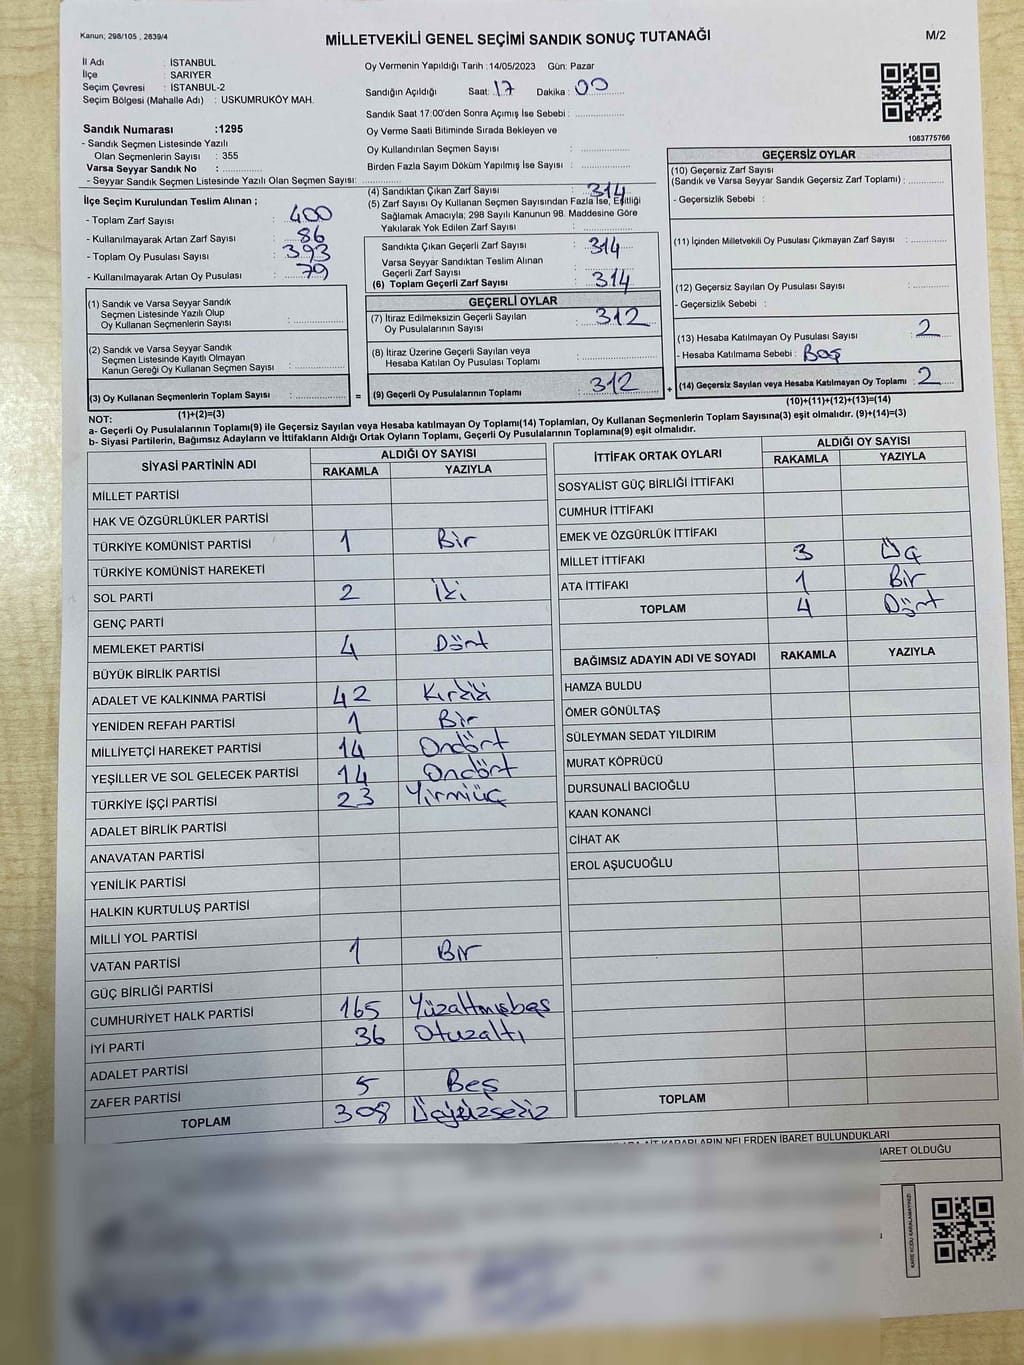 Kanun; 298/105 , 2839/4
MİLLETVEKİLİ GENEL SEÇİMİ SANDIK SONUÇ TUTANAĞI
M/2
İl Adı : İSTANBUL
İlçe : SARIYER
Seçim Çevresi : İSTANBUL-2
Seçim Bölgesi (Mahalle Adı) : USKUMRUKÖY MAH.
Sandık Numarası :1295
- Sandık Seçmen Listesinde Yazılı
Olan Seçmenlerin Sayısı : 355
Varsa Seyyar Sandık No :
- Seyyar Sandık Seçmen Listesinde Yazılı Olan Seçmen Sayısı:
Oy Vermenin Yapıldığı Tarih :14/05/2023 Gün: Pazar
Sandığın Açıldığı Saat: 17 Dakika : 00
Sandık Saat 17:00'den Sonra Açımış İse Sebebi :
Oy Verme Saati Bitiminde Sırada Bekleyen ve
Oy Kullandırılan Seçmen Sayısı :
Birden Fazla Sayım Döküm Yapılmış İse Sayısı :
1083775766
İlçe Seçim Kurulundan Teslim Alınan ;
- Toplam Zarf Sayısı : 400
- Kullanılmayarak Artan Zarf Sayısı : 86
- Toplam Oy Pusulası Sayısı : 393
- Kullanılmayarak Artan Oy Pusulası : 79
(1) Sandık ve Varsa Seyyar Sandık
Seçmen Listesinde Yazılı Olup
Oy Kullanan Seçmenlerin Sayısı :
(2) Sandık ve Varsa Seyyar Sandık
Seçmen Listesinde Kayıtlı Olmayan
Kanun Gereği Oy Kullanan Seçmen Sayısı :
(3) Oy Kullanan Seçmenlerin Toplam Sayısı :
(1)+(2)=(3)
(4) Sandıktan Çıkan Zarf Sayısı : 314
(5) Zarf Sayısı Oy Kullanan Seçmen Sayısından Fazla İse, Eşitliği
Sağlamak Amacıyla; 298 Sayılı Kanunun 98. Maddesine Göre
Yakılarak Yok Edilen Zarf Sayısı :
Sandıkta Çıkan Geçerli Zarf Sayısı : 314
Varsa Seyyar Sandıktan Teslim Alınan
Geçerli Zarf Sayısı :
(6) Toplam Geçerli Zarf Sayısı : 314
GEÇERLİ OYLAR
(7) İtiraz Edilmeksizin Geçerli Sayılan
Oy Pusulalarının Sayısı : 312
(8) İtiraz Üzerine Geçerli Sayılan veya
Hesaba Katılan Oy Pusulası Toplamı :
= (9) Geçerli Oy Pusulalarının Toplamı : 312 +
GEÇERSİZ OYLAR
(10) Geçersiz Zarf Sayısı
(Sandık ve Varsa Seyyar Sandık Geçersiz Zarf Toplamı) :
- Geçersizlik Sebebi :
(11) İçinden Milletvekili Oy Pusulası Çıkmayan Zarf Sayısı :
(12) Geçersiz Sayılan Oy Pusulası Sayısı :
- Geçersizlik Sebebi :
(13) Hesaba Katılmayan Oy Pusulası Sayısı : 2
- Hesaba Katılmama Sebebi : Boş
(14) Geçersiz Sayılan veya Hesaba Katılmayan Oy Toplamı : 2
(10)+(11)+(12)+(13)=(14)
NOT:
a- Geçerli Oy Pusulalarının Toplamı(9) ile Geçersiz Sayılan veya Hesaba katılmayan Oy Toplamı(14) Toplamları, Oy Kullanan Seçmenlerin Toplam Sayısına(3) eşit olmalıdır. (9)+(14)=(3)
b- Siyasi Partilerin, Bağımsız Adayların ve İttifakların Aldığı Ortak Oyların Toplamı, Geçerli Oy Pusulalarının Toplamına(9) eşit olmalıdır.
SİYASİ PARTİNİN ADI ALDIĞI OY SAYISI
RAKAMLA YAZIYLA
MİLLET PARTİSİ
HAK VE ÖZGÜRLÜKLER PARTİSİ
TÜRKİYE KOMÜNİST PARTİSİ 1 Bir
TÜRKİYE KOMÜNİST HAREKETİ
SOL PARTİ 2 İki
GENÇ PARTİ
MEMLEKET PARTİSİ 4 Dört
BÜYÜK BİRLİK PARTİSİ
ADALET VE KALKINMA PARTİSİ 42 Kırkiki
YENİDEN REFAH PARTİSİ 1 Bir
MİLLİYETÇİ HAREKET PARTİSİ 14 Ondört
YEŞİLLER VE SOL GELECEK PARTİSİ 14 Ondört
TÜRKİYE İŞÇİ PARTİSİ 23 Yirmiüç
ADALET BİRLİK PARTİSİ
ANAVATAN PARTİSİ
YENİLİK PARTİSİ
HALKIN KURTULUŞ PARTİSİ
MİLLİ YOL PARTİSİ
VATAN PARTİSİ 1 Bir
GÜÇ BİRLİĞİ PARTİSİ
CUMHURİYET HALK PARTİSİ 165 Yüzaltmışbeş
İYİ PARTİ 36 Otuzaltı
ADALET PARTİSİ
ZAFER PARTİSİ 5 Beş
TOPLAM 308 Üçyüzsekiz
İTTİFAK ORTAK OYLARI ALDIĞI OY SAYISI
RAKAMLA YAZIYLA
SOSYALİST GÜÇ BİRLİĞİ İTTİFAKI
CUMHUR İTTİFAKI
EMEK VE ÖZGÜRLÜK İTTİFAKI
MİLLET İTTİFAKI 3 Üç
ATA İTTİFAKI 1 Bir
TOPLAM 4 Dört
BAĞIMSIZ ADAYIN ADI VE SOYADI RAKAMLA YAZIYLA
HAMZA BULDU
ÖMER GÖNÜLTAŞ
SÜLEYMAN SEDAT YILDIRIM
MURAT KÖPRÜCÜ
DURSUNALİ BACIOĞLU
KAAN KONANCİ
CİHAT AK
EROL AŞUCUOĞLU
TOPLAM
KARARLARIN NELERDEN İBARET BULUNDUKLARI
İBARET OLDUĞU
KARE KODU KARALAMAYINIZ!